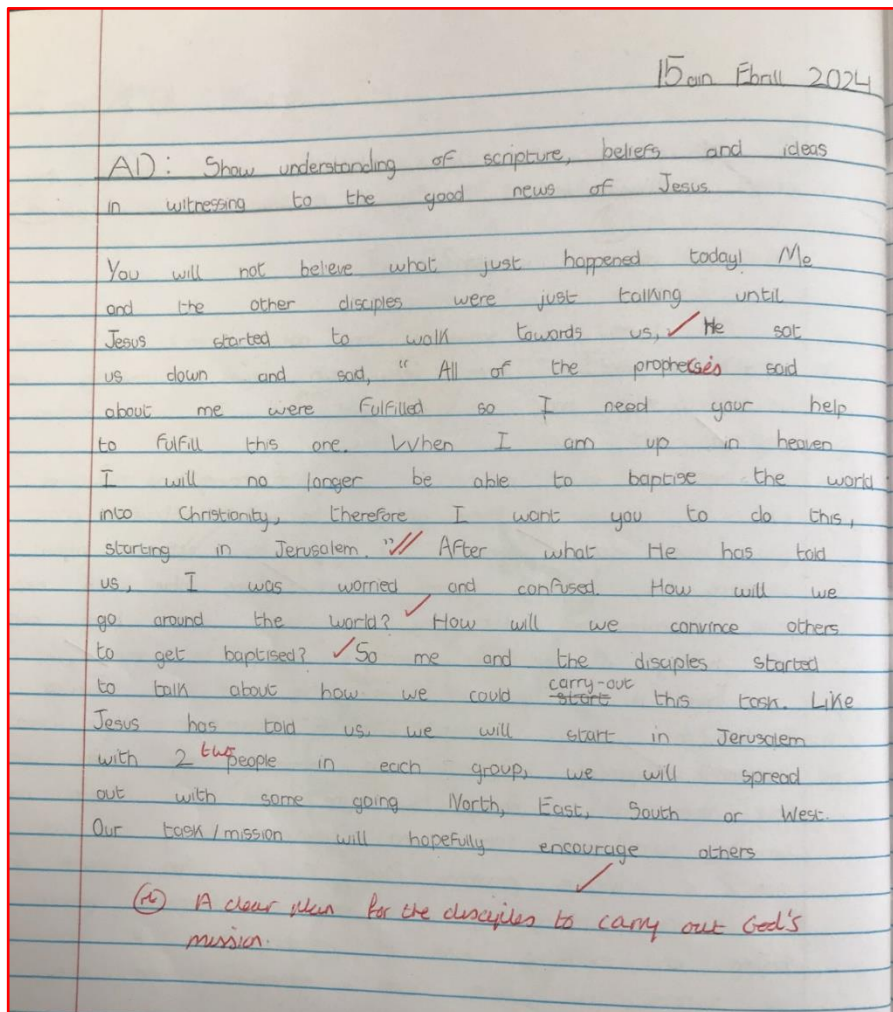 15ain Ebrill 2024
AD: Show understanding of scripture, beliefs and ideas
in witnessing to the good news of Jesus.
You will not believe what just happened today! Me
and the other disciples were just talking until
Jesus started to walk towards us, ✓ He sat
us down and said, " All of the prophetsies said
about me were fulfilled so I need your help
to fulfill this one. When I am up in heaven
I will no longer be able to baptise the world
into Christianity, therefore I want you to do this,
starting in Jerusalem. "✓✓ After what He has told
us, I was worried and confused. How will we
go around the world? ✓ How will we convince others
to get baptised? ✓ So me and the disciples started
to talk about how we could start carry-out this task. Like
Jesus has told us, we will start in Jerusalem
with 2 two people in each group, we will spread
out with some going North, East, South or West.
Our task/mission will hopefully encourage others
✓
A clear plan for the disciples to carry out God's
mission.